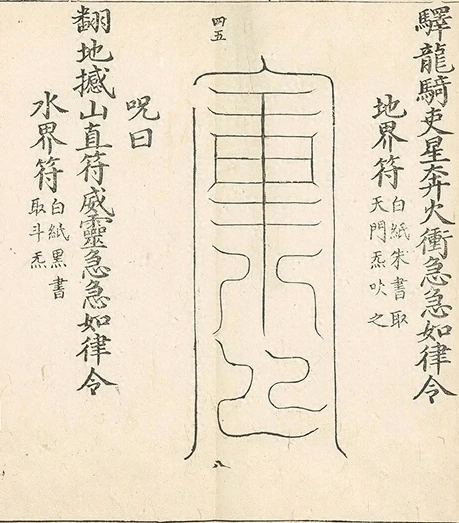 驛龍騎吏星奔火衝急急如律令
地界符白紙朱書取天門炁吹之
四五
八
呪曰
翻地撼山直符威靈急急如律令
水界符白紙黑書取斗炁